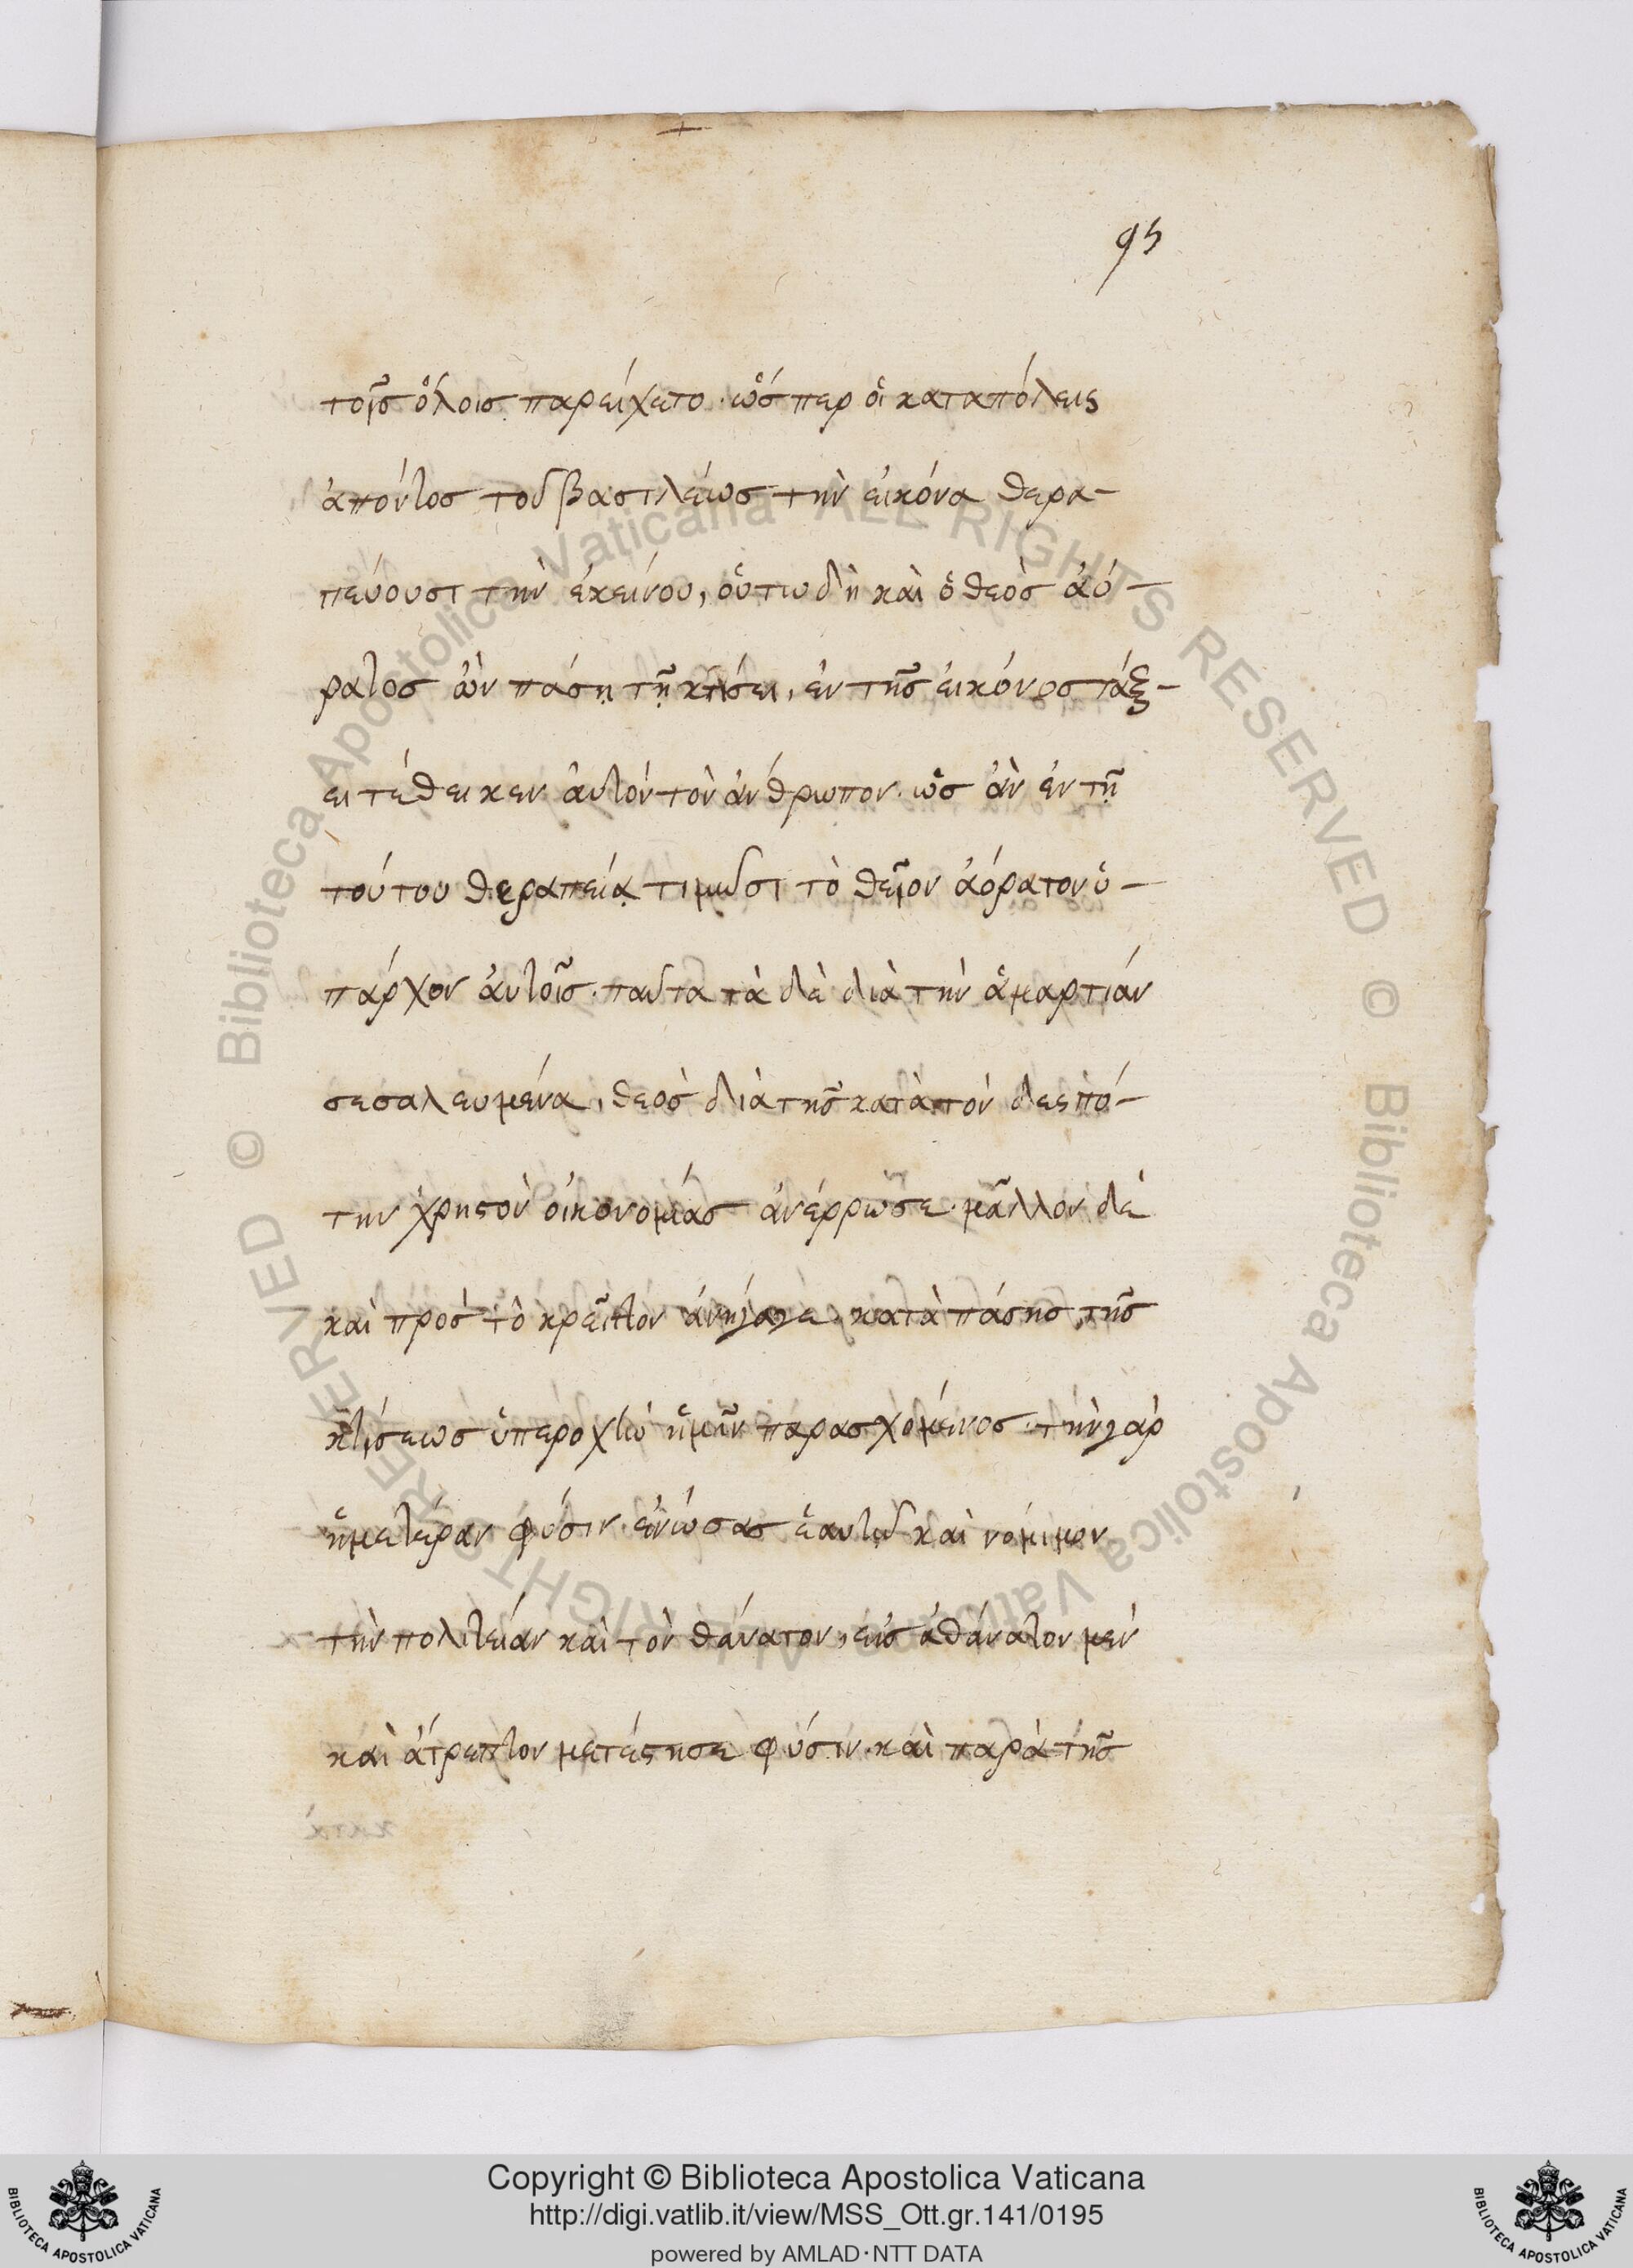 95
τοῖς ὅλοις παρείχετο. ὥσπερ ὁι καταπόλεις
ἀπόντος τοῦ βασιλέως τὴν εἰκόνα θερα-
πεύουσι τὴν ἐκείνου, ὅυτω δὴ καὶ ὁ θεὸς ἀό-
ρατος ὢν πάσῃ τῇ κτίσει, ἐν τῆς εἰκόνος τάξ-
ει τέθεικεν ἀυτόν τὸν ἄνθρωπον. ὡς ἂν ἐν τῇ
τούτου θεραπείᾳ τιμῶσι τὸ θεῖον ἀόρατον ὑ-
πάρχον ἀυτοῖς. παῦτα τὰ δὲ διὰ τὴν ἁμαρτιάν
σεσαλευμένα, θεὸς διὰ τῆς κατὰ τὸν δεσπό-
την χρηστὸν οἰκονομίας ἀνέρρωσε. μᾶλλον δὲ
καὶ πρὸς τὸ κρεῖττον ἀνήγαγε. κατὰ πάσης τῆς
κτίσεως ὑπεροχὴν ἡμῖν παρασχόμενος. τὴν γὰρ
ἡμετέραν φύσιν ἑνώσας ἑαυτῷ καὶ νόμιμον
τὴν πολιτείαν καὶ τὸν θάνατον, εἰς ἀθάνατον μὲν
καὶ ἄτρεπτον μετέστησε φύσιν. καὶ παρὰ τῆς
Copyright © Biblioteca Apostolica Vaticana
http://digi.vatlib.it/view/MSS_Ott.gr.141/0195
powered by AMLAD·NTT DATA
BIBLIOTECA APOSTOLICA VATICANA
BIBLIOTECA APOSTOLICA VATICANA
© Biblioteca Apostolica Vaticana ALL RIGHTS RESERVED © Biblioteca Apostolica Vaticana ALL RIGHTS RESERVED